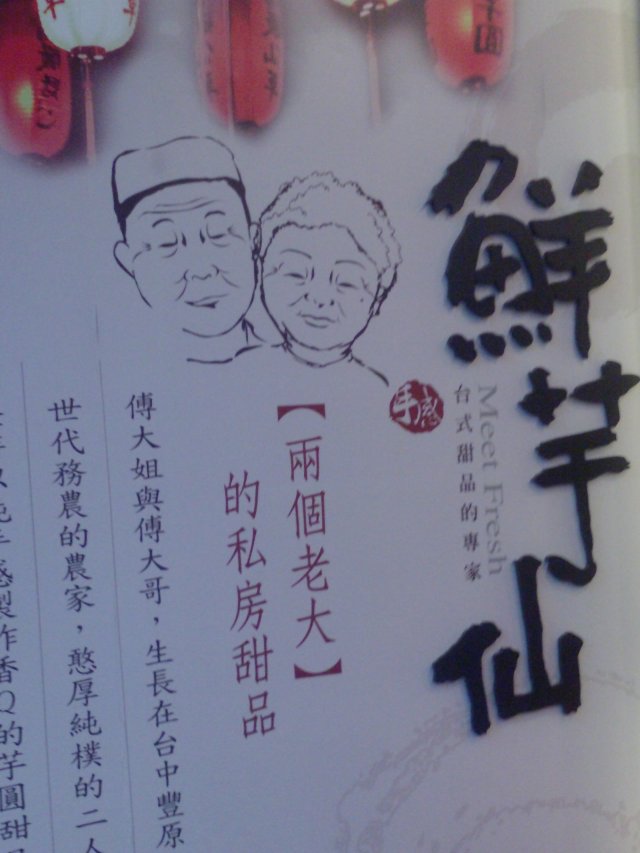 鮮芋仙
Meet Fresh
台式甜品的專家
手感
【兩個老大】
的私房甜品
傅大姐與傅大哥，生長在台中豐原
世代務農的農家，憨厚純樸的二人
純手感製作香Q的芋圓甜